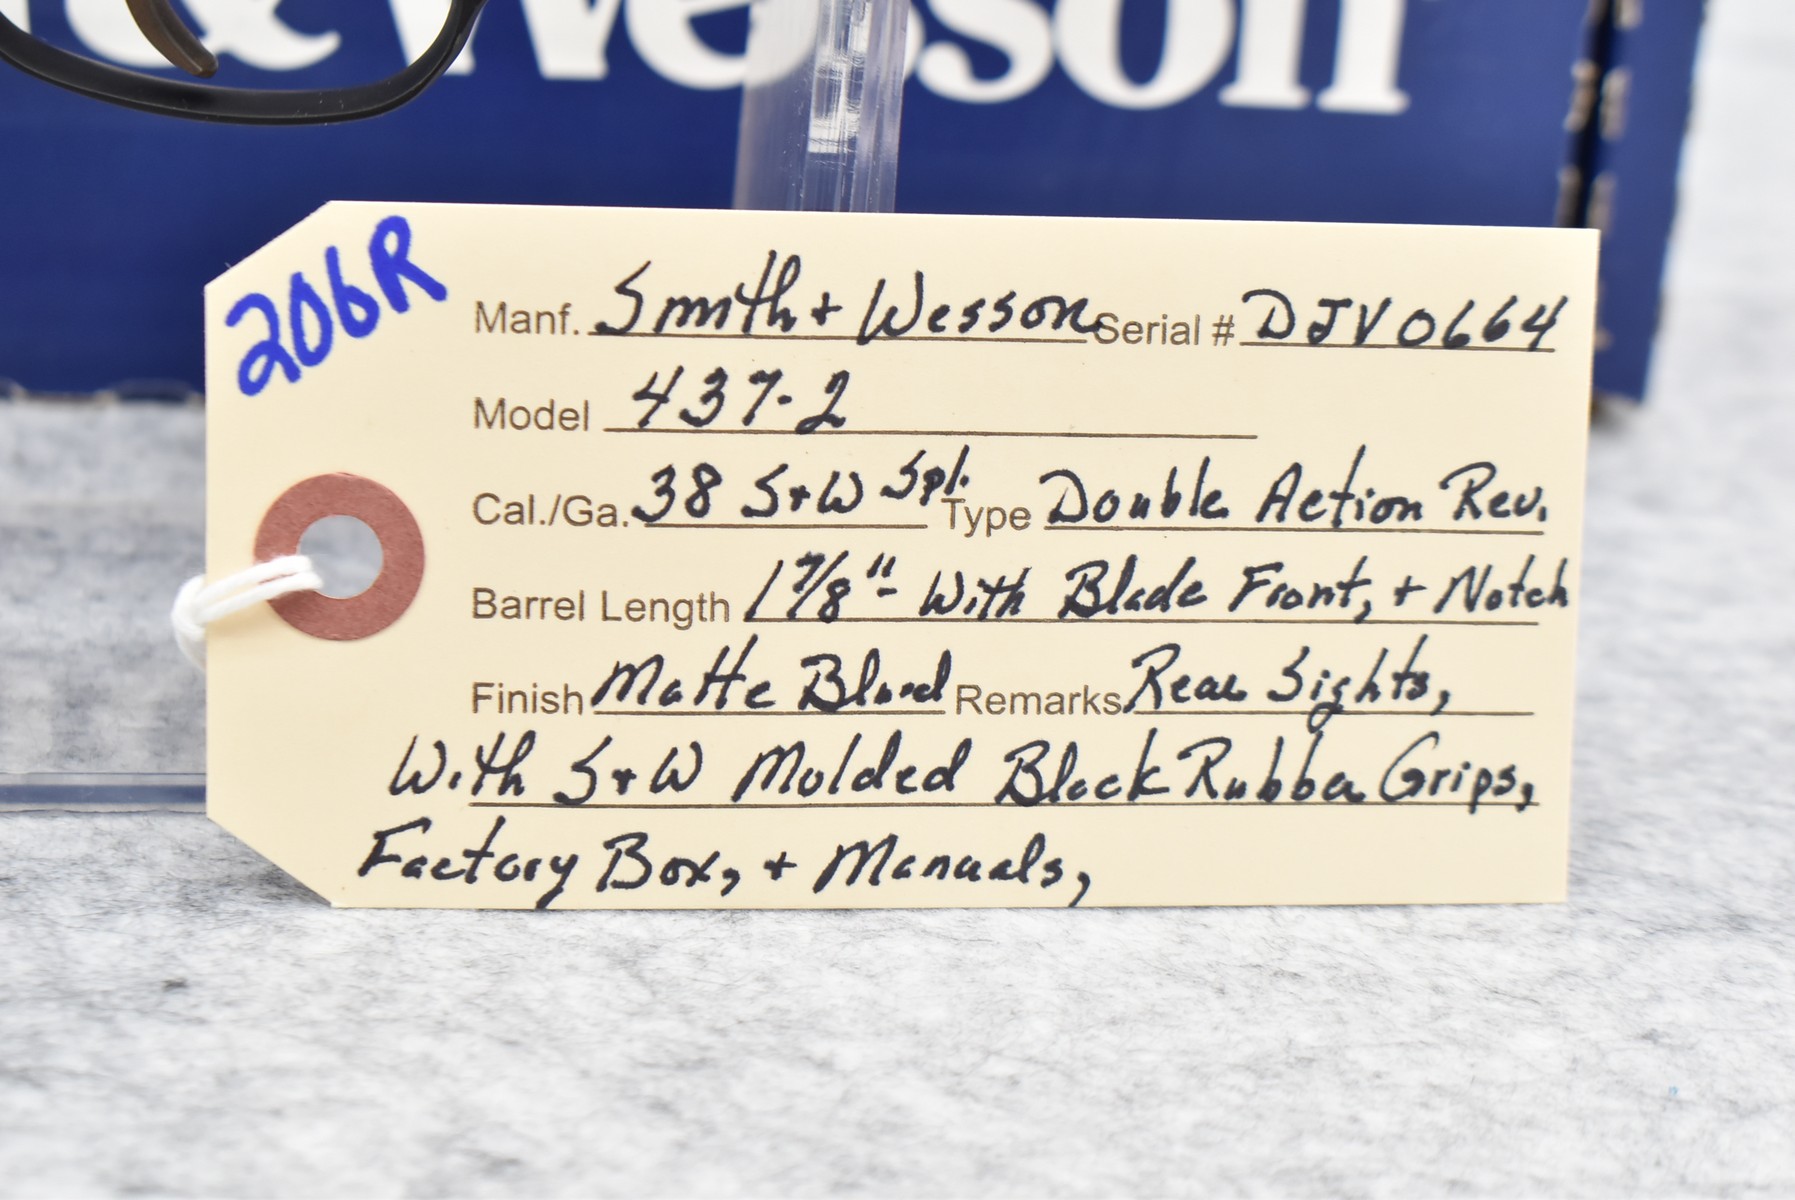 & Wesson
206R
Manf. Smith + Wesson Serial # DJV0664
Model 437-2
Cal./Ga. 38 S+W Spl. Type Double Action Rev.
Barrel Length 1 7/8" - With Blade Front, + Notch
Finish Matte Blued Remarks Rear Sights,
With S+W Molded Black Rubber Grips,
Factory Box, + Manuals,